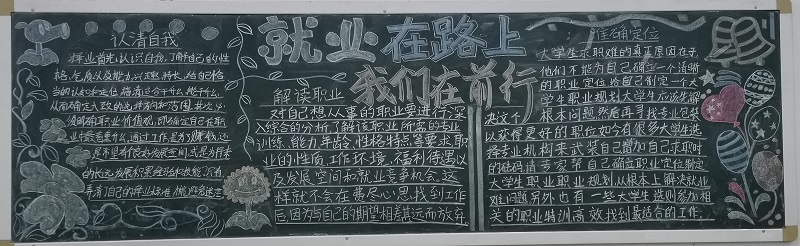 就业在路上
我们在前行
认清自我
择业首先认识自我,了解自己的性
格、气质以及能力、兴趣、特长,结合社会
当的认识和定位,搞清适合干什么,能干什么,
从而确定大致的业择方向和范围,其次必
须明确职业价值观,即确定自己在职
业中最看重什么,通过工作是为了赚钱,还
是不是有良好发展空间,或是为将来
的长远发展积累经验和技能,只有
弄清自己的择业标准,
解读职业
对自己想从事的职业要进行深
入综合的分析了解该职业所需的专业
训练、能力、年龄、性格特点等要求,职
业的性质、工作环境、福利待遇以
及发展空间和就业竞争机会,这
样就不会在费尽心思找到工作
后,因为与自己的期望相差甚远而放弃。
准确定位
大学生求职难的真正原因在于
他们不能为自己确定一个清晰
的职业定位,给自己制定一个大
学生职业规划,大学生应该先解
决这个根本问题,然后再寻找专业包装
以获得更好的职位,如今有很多大学生选
择专业机构来武装自己增加自己求职时
的砝码,请专家帮自己确定职业定位,制定
大学生职业职业规划,从根本上解决就业
难问题,另外也有一些大学生选则参加相
关的职业特训,高效找到最适合的工作。